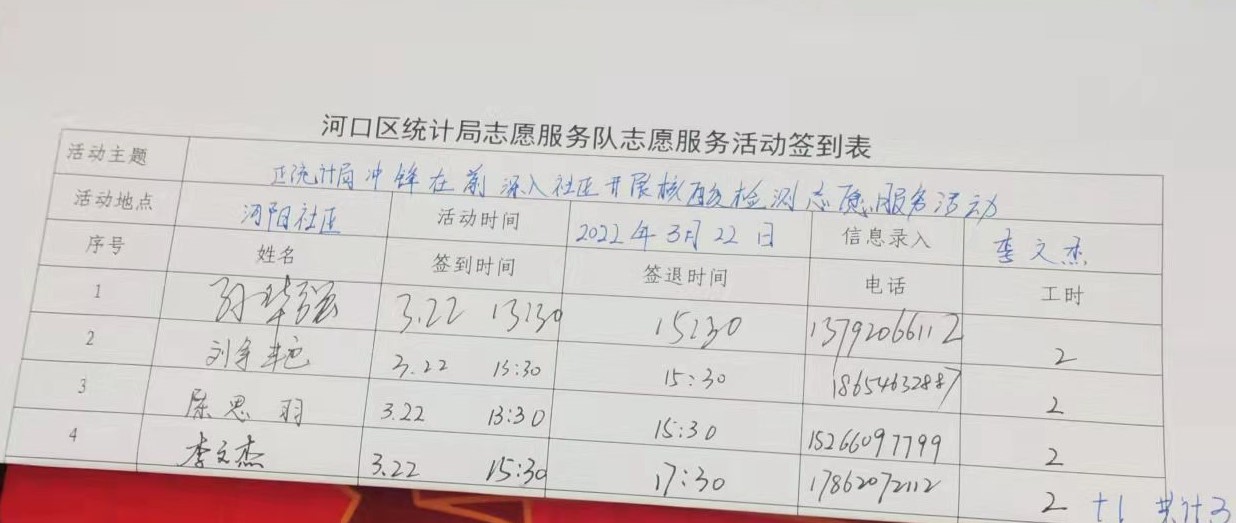 河口区统计局志愿服务队志愿服务活动签到表
活动主题 区统计局冲锋在前深入社区开展核酸检测志愿服务活动
活动地点 河阳社区 活动时间 2022年3月22日 信息录入 李文杰
序号 姓名 签到时间 签退时间 电话 工时
1 孙华强 3.22 13:30 15:30 13792066112 2
2 3.22 13:30 15:30 18654632887 2
3 陈思羽 3.22 13:30 15:30 15266097799 2
4 李文杰 3.22 15:30 17:30 17862072112 2 +1 共计3